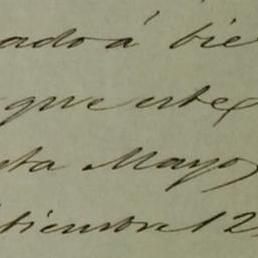 ado á bie
que este
ta Mayo
tiembre 12